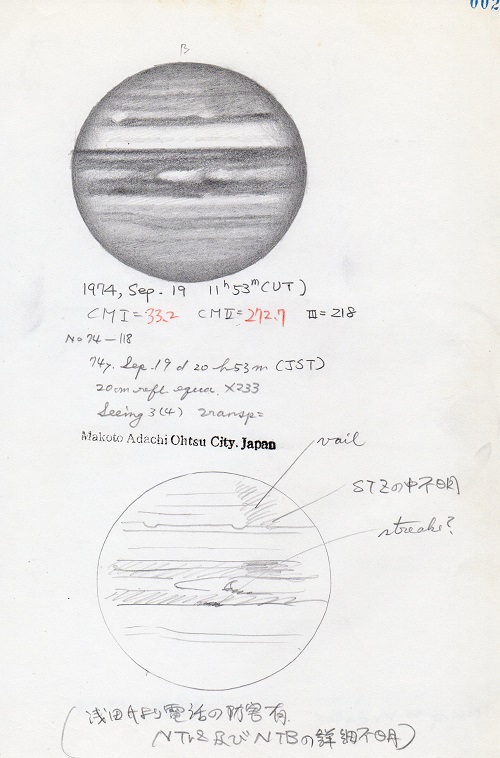 002
B
1974, Sep. 19 11h 53m (UT)
CM I = 33.2 CM II = 272.7 III = 218
No 74-118
74y. Sep. 19 d 20 h 53 m (JST)
20cm refl. equa. X233
Seeing 3(4) transp=
Makoto Adachi Ohtsu City. Japan
vail
STZの中不明
streaks?
(浅田氏より電話の妨害有.
NTrZ及びNTBの詳細不明)